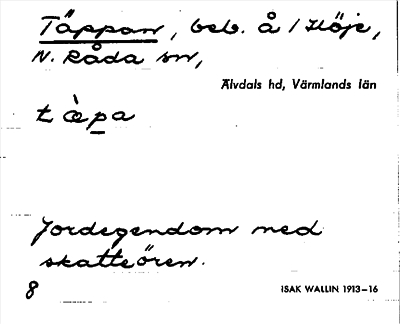 Täppan, beb. å / Höje,
N. Råda sn,
Älvdals hd, Värmlands län
tæ̀pa
Jordegendom med
skatteören.
8
ISAK WALLIN 1913–16